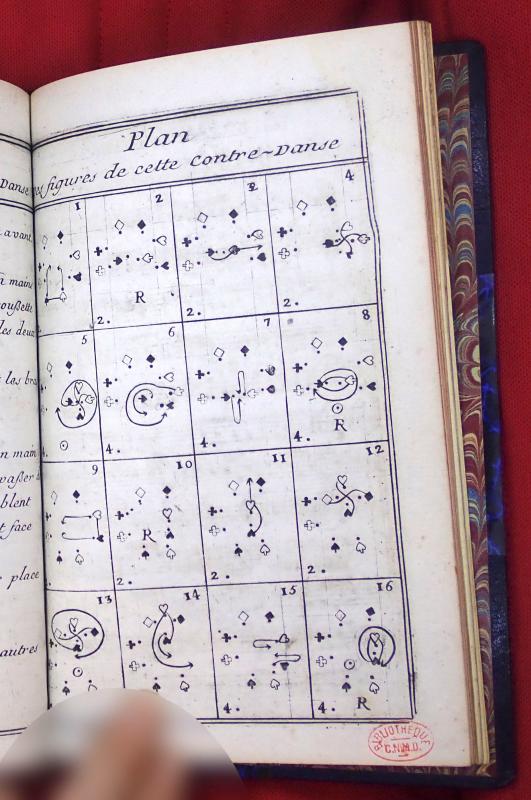 Danse
avant,
n main
ousette
les deux
les bra
n main
passer
blent
t face
place
autres
Plan
figures de cette Contre~Danse
1 2 3 4
R
2. 2. 2.
5 6 7 8
R
4. 4. 4.
9 10 11 12
R
2. 2. 2.
13 14 15 16
4. 4. R
BIBLIOTHEQUE
C.N.M.D.